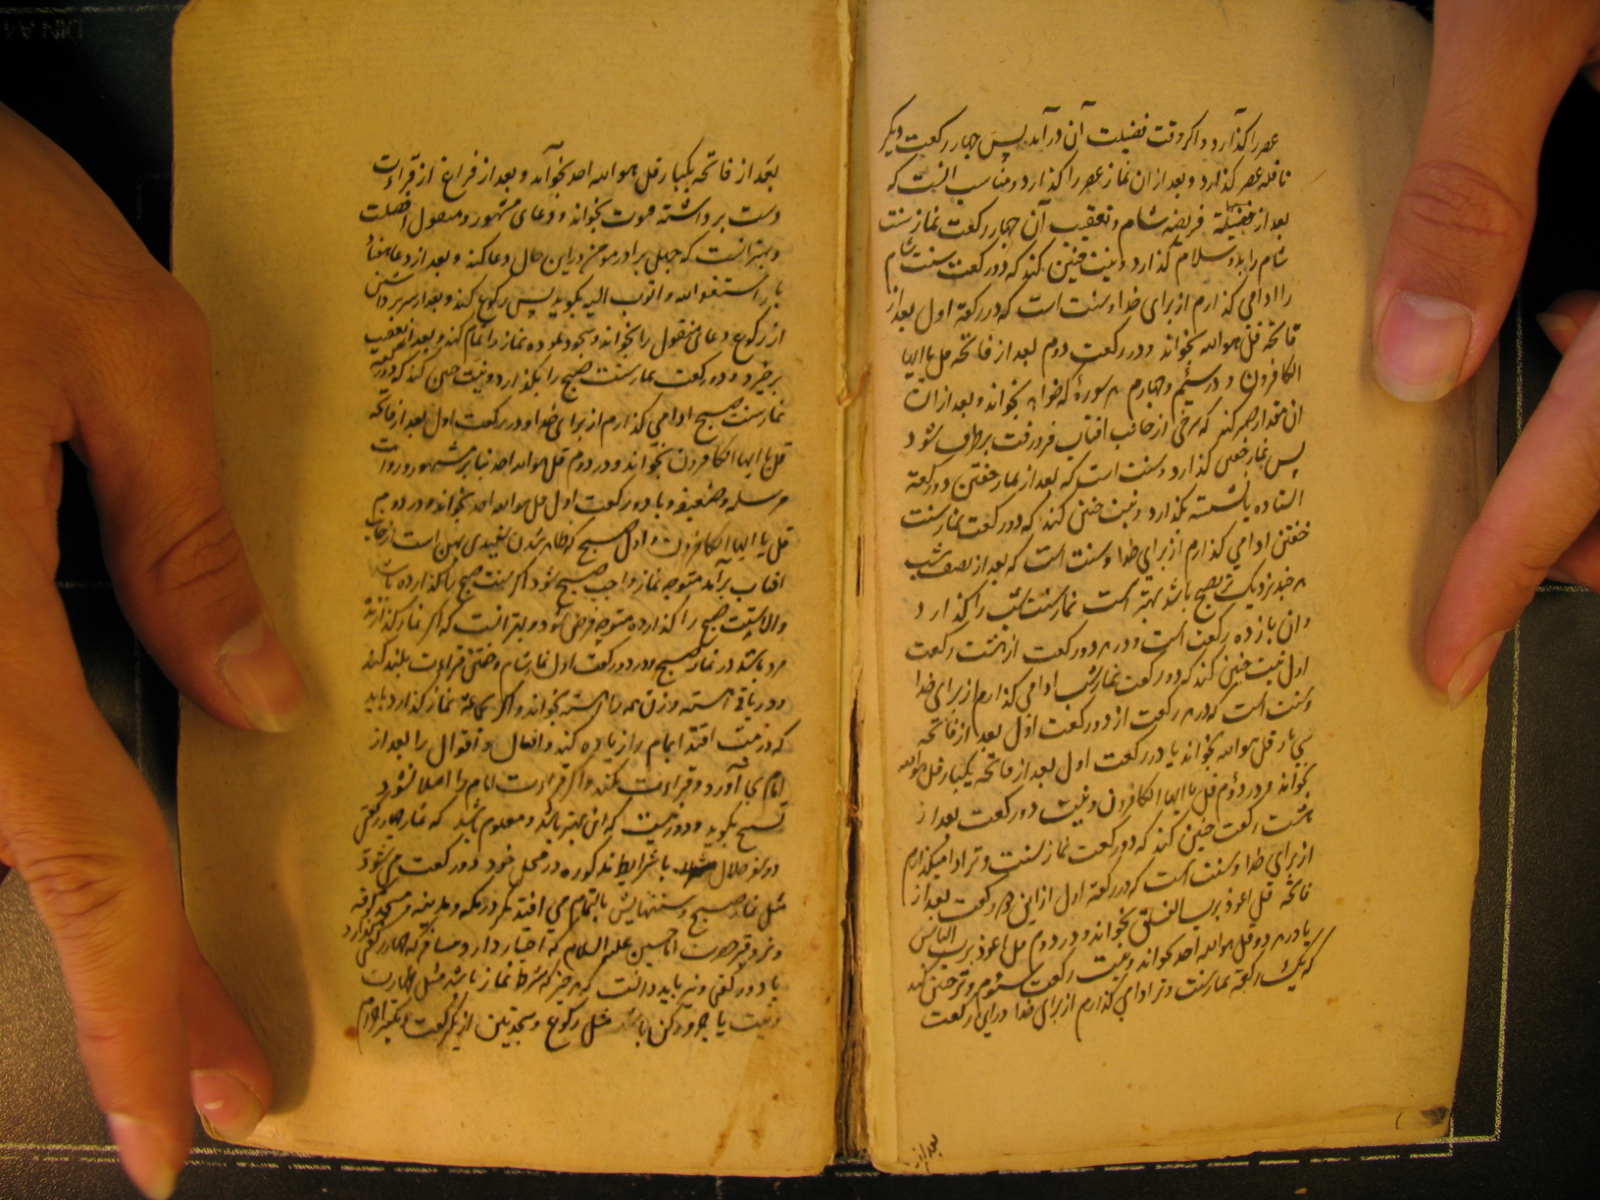 عصر را گذارد و اگر وقت فضیلت آن درآمد پس چهار رکعت دیگر
نافله عصر گذارد و بعد از آن نماز عصر را گذارد و مناسب آنست که
بعد از فریضه شام و تعقیب آن چهار رکعت نماز سنت
شام را بدو سلام گذارد و نیت چنین کند که دو رکعت سنت شام
را ادا می گذارم از برای خدا و سنت است که در رکعة اول بعد از
فاتحه قل هو الله بخواند و در رکعت دوم بعد از فاتحه قل یا ایها
الکافرون و در سیم و چهارم هر سوره که خواهد بخواند و بعد از آن
آن مقدار صبر کند که سرخی از جانب افتاب فرو رفت برطرف شود
پس نماز خفتن گذارد و سنت است که بعد از نماز خفتن دو رکعة
نشسته بگذارد و نیت چنین کند که دو رکعت نماز سنت
خفتن ادا می گذارم از برای خدا و سنت است که بعد از نصف شب
هر چند نزدیک تر بصبح باشد بهتر است نماز سنت شب را گذارد
و آن یازده رکعت است و در هر دو رکعت از هشت رکعت
اول نیت چنین کند که دو رکعت نماز شب ادا می گذارم از برای خدا
و سنت است که در هر رکعت از دو رکعت اول بعد از فاتحه
سی بار قل هو الله بخواند یا در رکعت اول بعد از فاتحه یکبار قل هو الله
بخواند و در دوم قل یا ایها الکافرون و نیت دو رکعت بعد از
هشت رکعت چنین کند که دو رکعت نماز سنت وتر ادا میگذارم
از برای خدا و سنت است که در رکعة اول از این دو رکعت بعد از
فاتحه قل اعوذ برب الفلق بخواند و در دوم قل اعوذ برب الناس
یا در هر دو قل هو الله احد بخواند و نیت رکعت سیوم وتر چنین کند
که یک رکعة نماز سنت وتر ادا می گذارم از برای خدا و در این رکعت
بعد از
بعد از فاتحه یکبار قل هو الله احد بخواند و بعد از فراغ از قراءت
دست برداشته قنوت بخواند و دعای مشهور و منقول افضلست
و بهتر آنست که چهل برادر مومن در این حال دعا کند و بعد از دعا هفتاد
بار استغفر الله و اتوب الیه بگوید پس رکوع کند و بعد از سر برداشتن
از رکوع دعای منقول را بخواند و بسجود رود نماز را تمام کند و بعد از تعقیب
برخیزد و دو رکعت نماز سنت صبح را بگذارد و نیت چنین کند که دو رکعة
نماز سنت صبح ادا می گذارم از برای خدا و در رکعت اول بعد از فاتحه
قل یا ایها الکافرون بخواند و در دوم قل هو الله احد بنا بر مشهور و روایت
مرسله و ضعیفه و یا در رکعت اول قل هو الله احد بخواند و در دوم
قل یا ایها الکافرون و اول صبح که ظاهر شدن سفیدی پهن است از جانب
افتاب برآمد متوجه نماز واجب صبح شود اگر سنت صبح را گذارده باشد
والا سنت صبح را گذارده متوجه فرض شود و بهتر آنست که اگر نماز گذارنده
مرد باشد در نماز صبح و در دو رکعت اول نماز شام و خفتن قراءت بلند کند
و در باقی آهسته و زن همه را آهسته بخواند و اگر بجماعة نماز گذارد باید
که در نیت اقتدا بامام را زیاده کند و افعال و اقوال را بعد از
امام بجا آورد و قراءت نکند و اگر قراءت امام را اصلا نشنود
تسبیح بگوید و دور نیست که این بهتر باشد و معلوم باشد که نماز چهار رکعتی
در سفر حلال با شرایط مذکوره در محل خود دو رکعت می شود
مثل نماز صبح و سنتهایش بالتمام می افتد مگر در مکه و مدینه و مسجد کوفه
و نزد قبر حضرت امام حسین علیه السلام که اختیار دارد مسافر که چهار رکعتی گذارد
یا دو رکعتی و نیز باید دانست که هر چیز که شرط نماز باشد مثل طهارت
و نیت یا جزو رکن باشد مثل رکوع و سجدتین از یک رکعت و تکبیر احرام